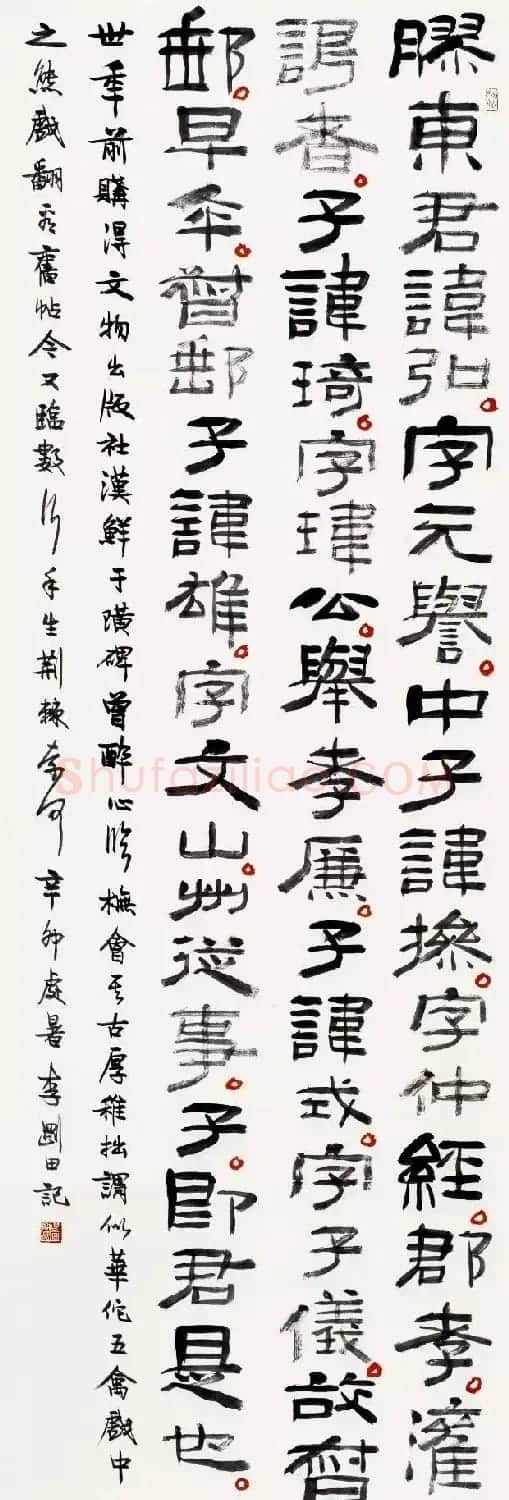 膠東君諱弘字元譽中子諱操字仲經郡孝灌
謁者子諱琦字瑋公舉孝廉子諱或字子儀故督
郵早卒督郵子諱雄字文山州從事子即君是也
世年前購得文物出版社漢鮮于璜碑曾醉心臨橅會其古厚稚拙謂似華佗五禽戲中
之熊戲翻看舊帖今又臨數行手生荊棘奈何辛卯處暑李剛田記
Shufaziliao.COM